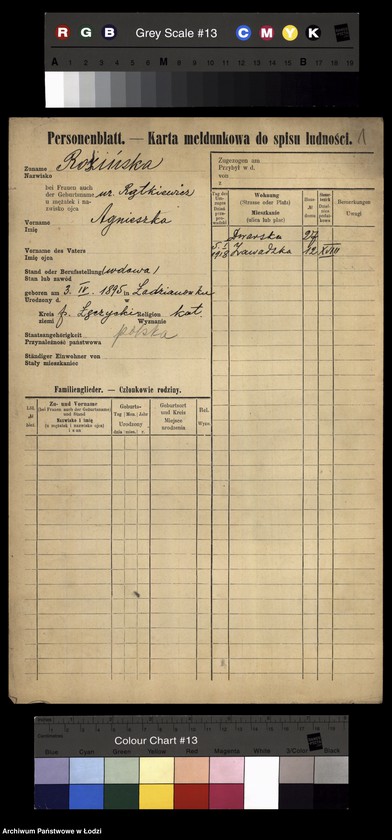 R G B Grey Scale #13 C M Y K
A 1 2 3 4 5 6 M 8 9 10 11 12 13 14 15 B 17 18 19
Personenblatt. — Karta meldunkowa do spisu ludności. 1
Zuname
Nazwisko Rozińska
bei Frauen auch
der Geburtsname
u mężatek i na-
zwisko ojca ur. Rątkiewicz
Vorname
Imię Agnieszka
Vorname des Vaters
Imię ojca
Stand oder Berufsstellung
Stan lub zawód (wdowa)
geboren am 3. IV. 1895 in
Urodzony d. w
Kreis
ziemi p. Łęczycki Religion
Wyznanie kat.
Staatsangehörigkeit
Przynależność państwowa polska
Ständiger Einwohner von
Stały mieszkaniec
Familienglieder. — Członkowie rodziny.
Zu- und Vorname
(bei Frauen auch der Geburtsname)
und Stand
Nazwisko i imię
(u mężatek i nazwisko ojca)
i stan
Geburts-
Tag | Mon. | Jahr
Urodzony
dnia | mies. | r.
Geburtsort
und Kreis
Miejsce
urodzenia
Rel.
Wyzn.
Zugezogen am
Przybył w d.
von
z
Wohnung
(Strasse oder Platz)
Mieszkanie
(ulica lub plac)
Bemerkungen
Uwagi
Dworska 27
5. I 1918 Zawadzka 12 XVIII
Colour Chart #13
Blue Cyan Green Yellow Red Magenta White 3/Color Black
Archiwum Państwowe w Łodzi